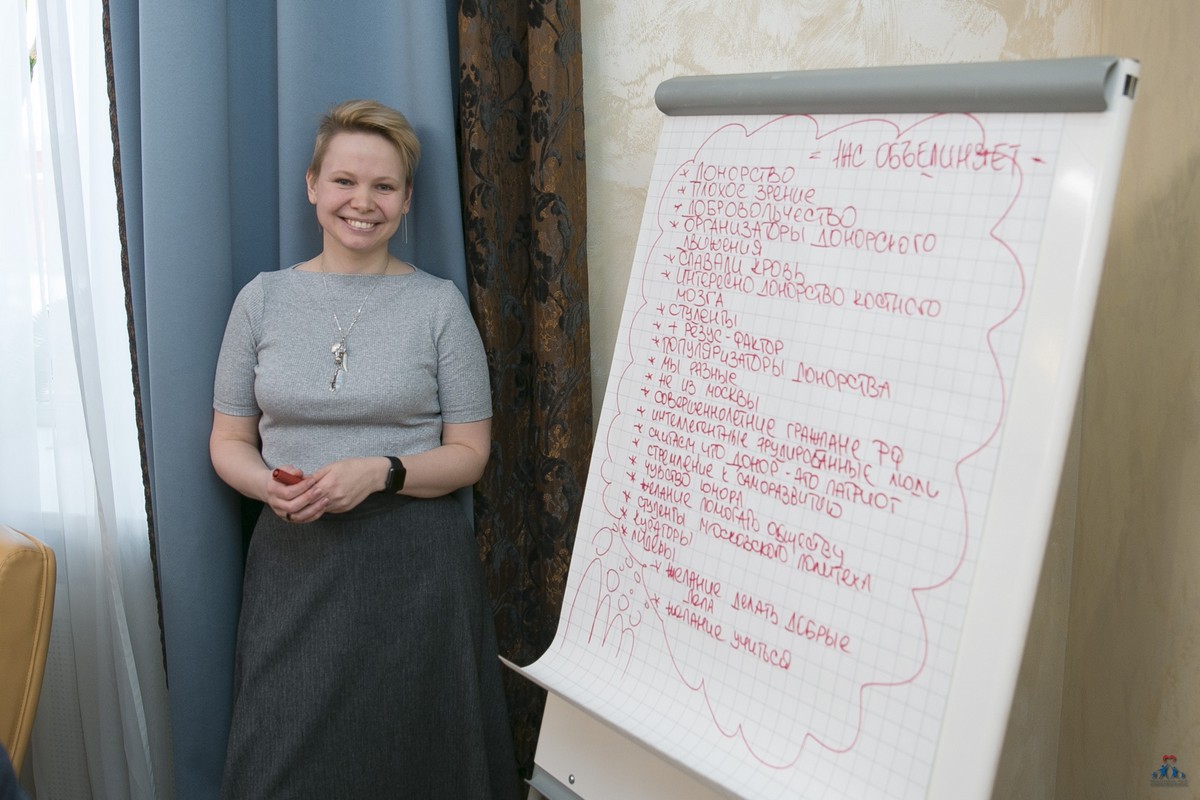 = НАС ОБЪЕДИНЯЕТ -
* ДОНОРСТВО
* ПЛОХОЕ ЗРЕНИЕ
* ДОБРОВОЛЬЧЕСТВО
* ОРГАНИЗАТОРЫ ДОНОРСКОГО
ДВИЖЕНИЯ
* СДАВАЛИ КРОВЬ
* ИНТЕРЕСНО ДОНОРСТВО КОСТНОГО
МОЗГА
* СТУДЕНТЫ
* + РЕЗУС-ФАКТОР
* ПОПУЛЯРИЗАТОРЫ ДОНОРСТВА
* МЫ РАЗНЫЕ
* НЕ ИЗ МОСКВЫ
* СОВЕРШЕННОЛЕТНИЕ ГРАЖДАНЕ РФ
* ИНТЕЛЛЕГЕНТНЫЕ ЭРУДИРОВАННЫЕ ЛЮДИ
* СЧИТАЕМ ЧТО ДОНОР - ЭТО ПАТРИОТ
* СТРЕМЛЕНИЕ К САМОРАЗВИТИЮ
* ЧУВСТВО ЮМОРА
* ЖЕЛАНИЕ ПОМОГАТЬ ОБЩЕСТВУ
* СТУДЕНТЫ МОСКОВСКОГО ПОЛИТЕХА
* КУРАТОРЫ
* ЛИДЕРЫ
* ЖЕЛАНИЕ ДЕЛАТЬ ДОБРЫЕ
ДЕЛА
* ЖЕЛАНИЕ УЧИТЬСЯ